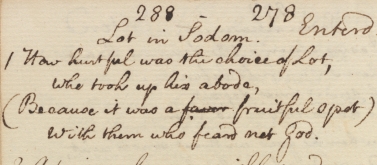 288 278 Enterd
Lot in Sodom.
1 How hurtful was the choice of Lot,
Who took up his abode,
(Because it was a fruitful spot)
With them who feard not God.